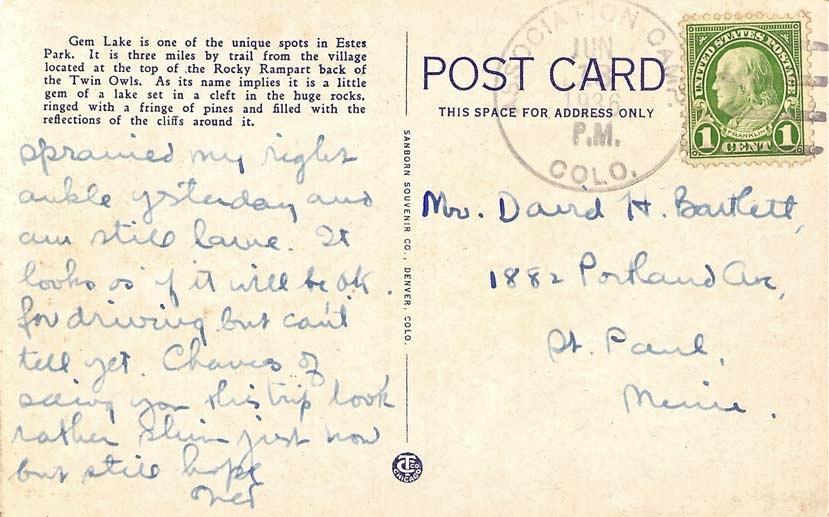 Gem Lake is one of the unique spots in Estes
Park. It is three miles by trail from the village
located at the top of the Rocky Rampart back of
the Twin Owls. As its name implies it is a little
gem of a lake set in a cleft in the huge rocks,
ringed with a fringe of pines and filled with the
reflections of the cliffs around it.
sprained my right
ankle yesterday and
am still lame. It
looks as if it will be ok.
for driving but can't
tell yet. Chances of
seeing you this trip look
rather slim just now
but still hope
SANBORN SOUVENIR CO., DENVER, COLO.
CHICAGO
POST CARD
THIS SPACE FOR ADDRESS ONLY
ASSOCIATION CAMP
JUN
1936
P.M.
COLO.
UNITED STATES POSTAGE
FRANKLIN
1 CENT 1
Mr. David H. Bartlett,
1882 Portland Ave,
St. Paul,
Minn.